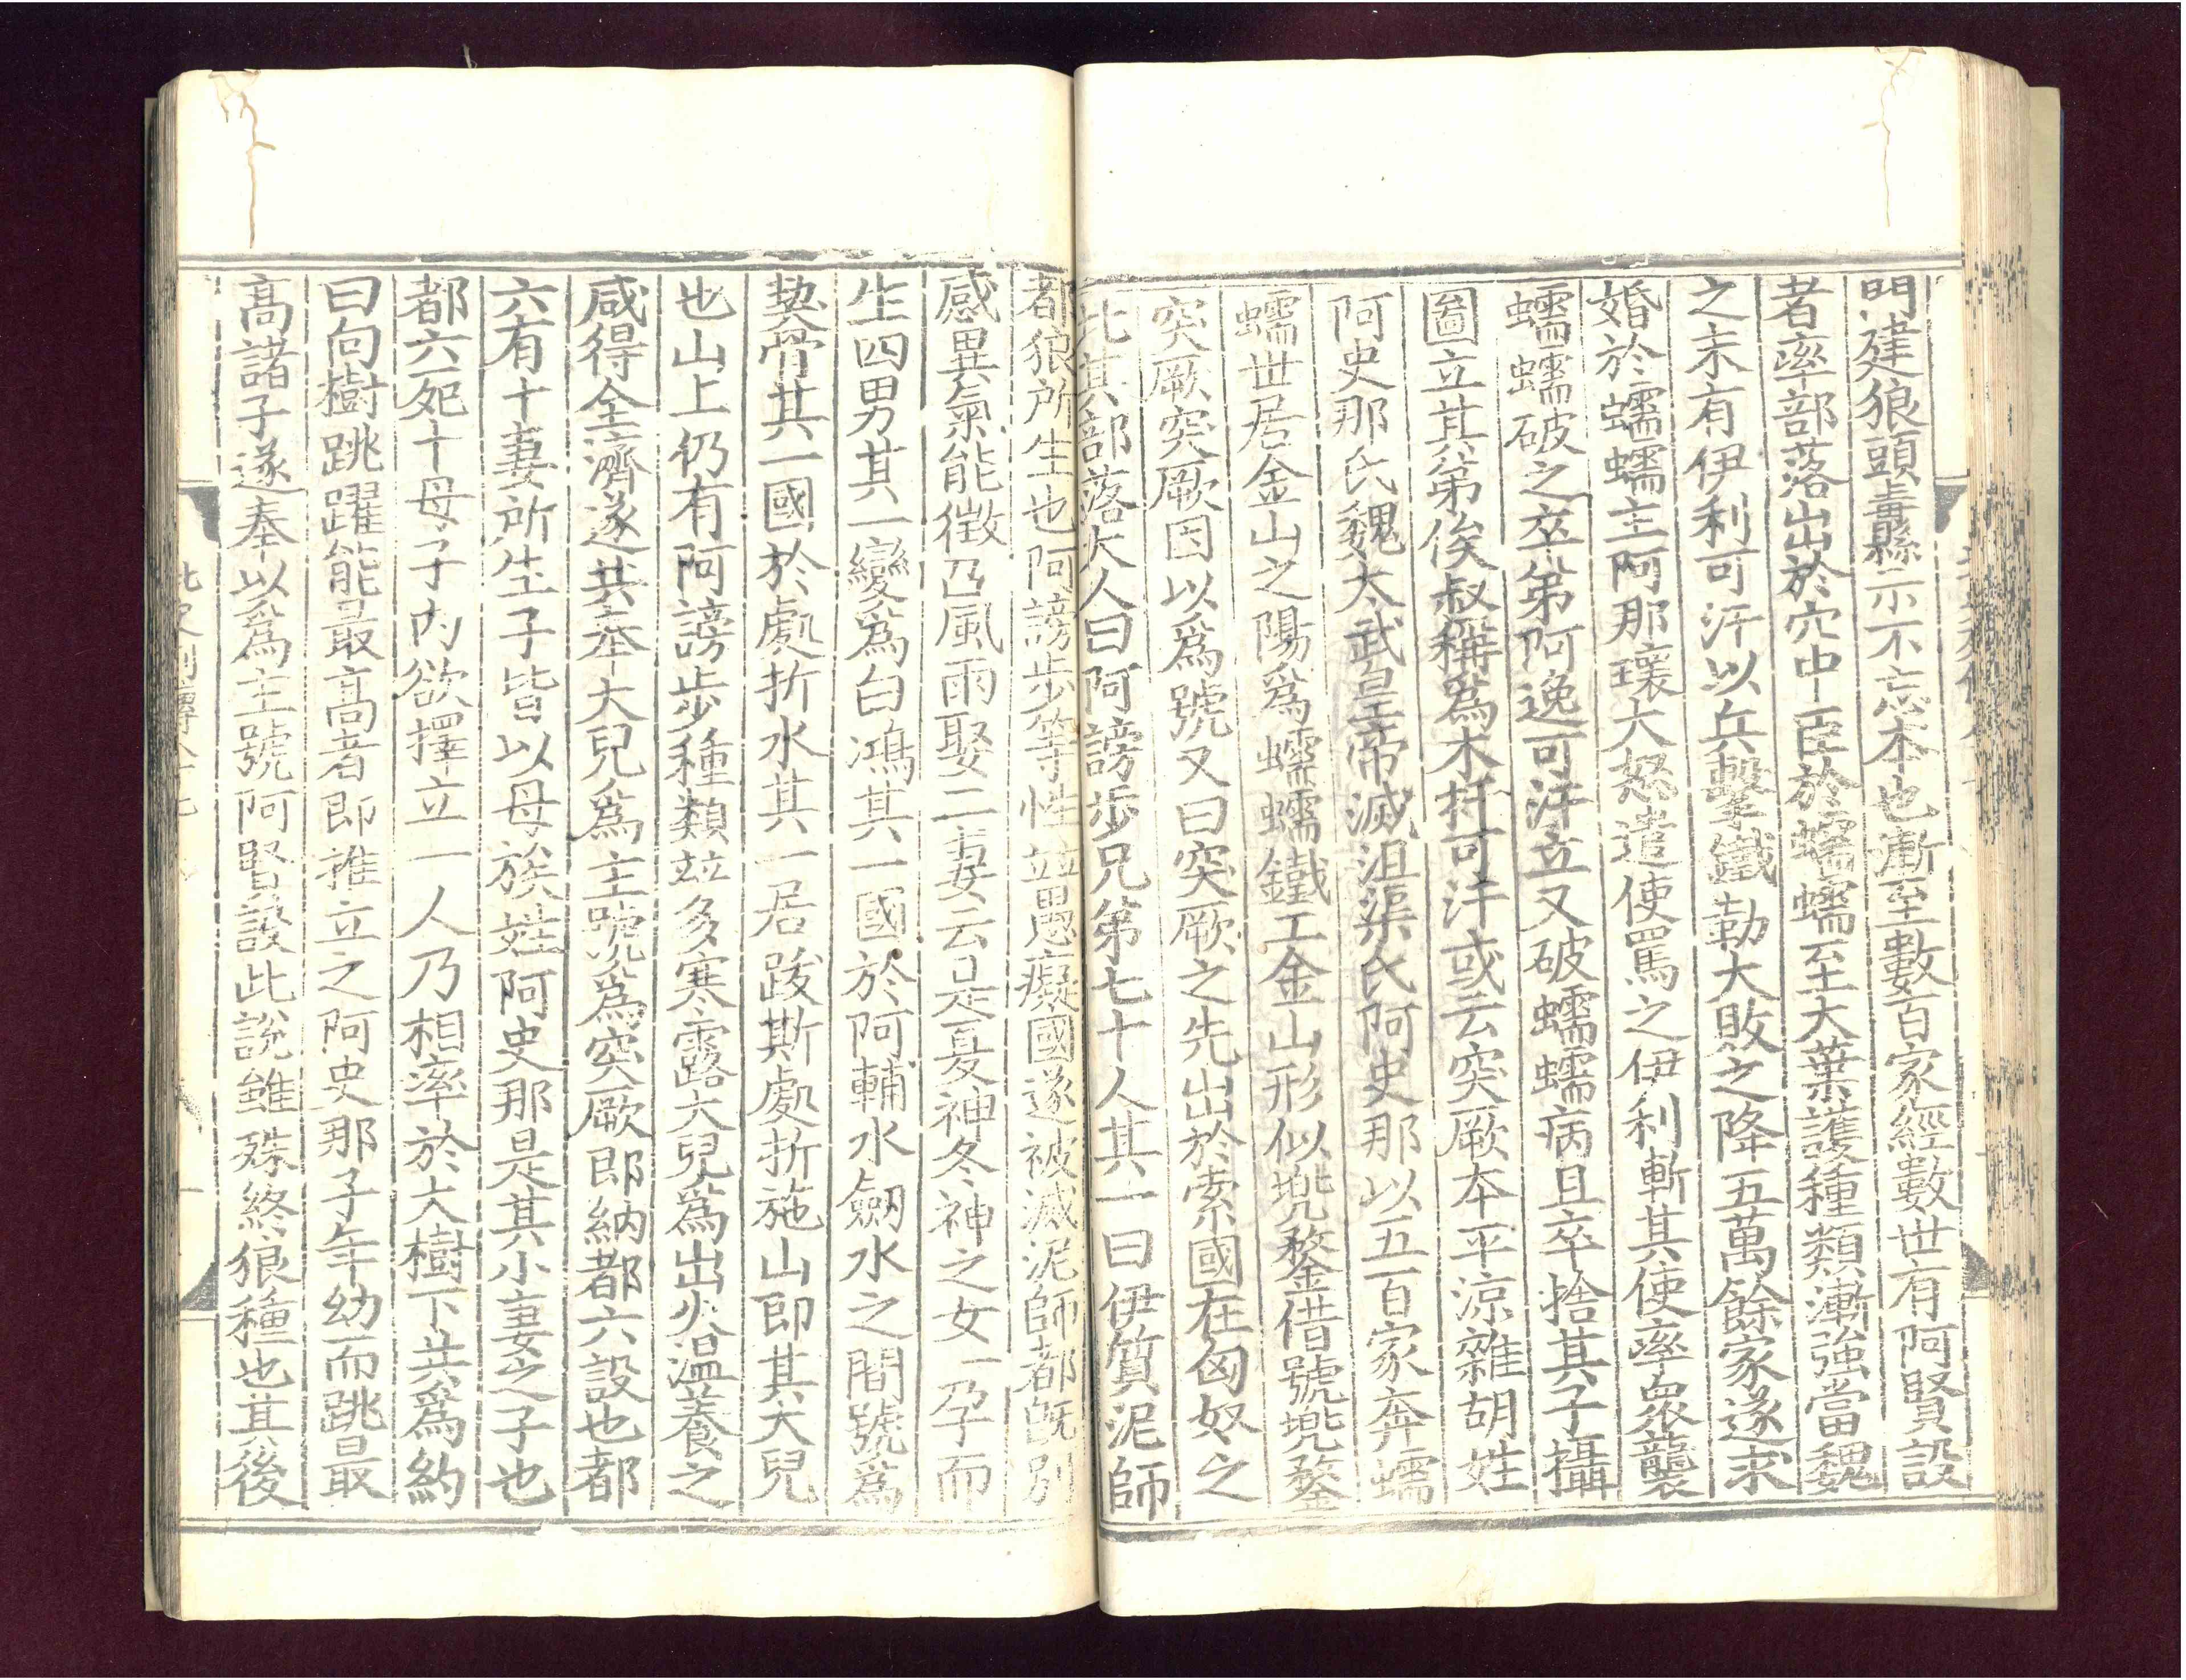 門建狼頭纛縣示不忘本也漸至數百家經數世有阿賢設
者率部落出於穴中臣於蠕蠕至大葉護種類漸強當魏
之末有伊利可汗以兵擊鐵勒大敗之降五萬餘家遂求
婚於蠕蠕主阿那瓌大怒遣使罵之伊利斬其使率衆襲
蠕蠕破之卒第阿逸可汗立又破蠕蠕病且卒捨其子攝
圖立其第俟叔稱爲木扞可汗或云突厥本平涼雜胡姓
阿史那氏魏太武皇帝滅沮渠氏阿史那以五百家奔蠕
蠕世居金山之陽爲蠕蠕鐵工金山形似兠鍪借號兠鍪
突厥突厥因以爲號又曰突厥之先出於索國在匈奴之
北其部落大人曰阿謗步兄第七十人其一曰伊質泥師
都狼所生也阿謗步等性並愚癡國遂被滅泥師都旣別
感異氣能徵召風雨娶二妻云是夏神冬神之女一孕而
生四男其一變爲白鴻其一國於阿輔水劒水之間號爲
契骨其一國於處折水其一居跋斯處折施山即其大兒
也山上仍有阿謗步種類並多寒露大兒爲出火温養之
咸得全濟遂共奉大兒爲主號爲突厥即納都六設也都
六有十妻所生子皆以母族姓阿史那是其小妻之子也
都六死十母子内欲擇立一人乃相率於大樹下共爲約
曰向樹跳躍能最髙者即推立之阿史那子年幼而跳最
髙諸子遂奉以爲主號阿賢設此說雖殊終狼種也其後
北史列傳八十七